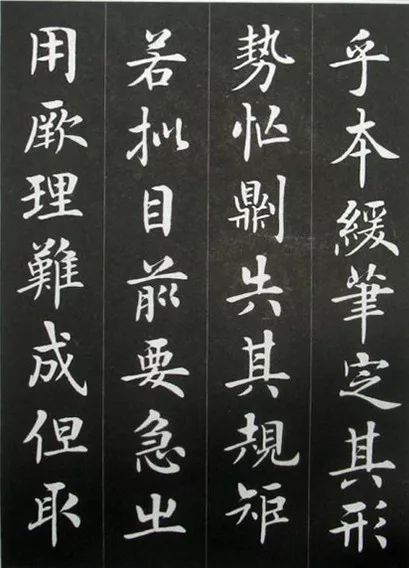 乎本緩筆定其形
勢忙則失其規矩
若擬目前要急之
用厥理難成但取